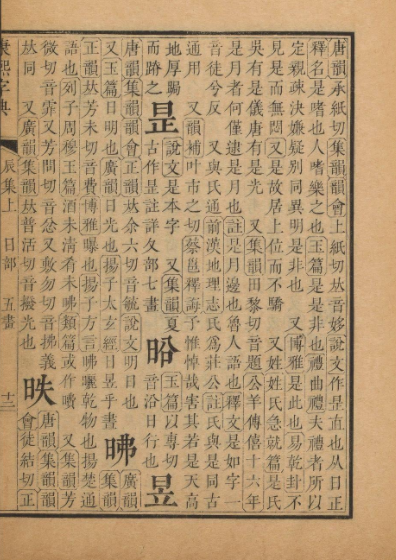 唐韻承紙切集韻韻會上紙切𠀤音姼說文作昰直也从日正
釋名是嗜也人嗜樂之也玉篇是是非也禮曲禮夫禮者所以
定親疎決嫌疑別同異明是非也 又博雅是此也易乾卦不
見是而無悶又是故居上位而不驕 又姓姓氏急就篇是氏
吳有是儀唐有是光 又集韻田黎切音題公羊傳僖十六年
是月者何僅逮是月也註是月邊也魯人語也釋文是如字一
音徒兮反 又與氏通前漢地理志氏爲莊公註氏與是同古
通用 又韻補叶市之切蔡邕釋誨予惟悼哉害其若是天高
地厚跼而蹐之 昰 說文是本字 又集韻夏 昤 玉篇以專切 昱
古作是註詳夂部七畫 音沿日行也
唐韻集韻韻會正韻𠀤余六切音毓說文明日也
又玉篇日明也廣韻日光也揚子太玄經日昱乎晝 昲 廣韻集韻
正韻𠀤芳未切音費博雅曝也揚子方言昲曬乾物也揚楚通
語也列子周穆王篇酒未淸肴未昲類篇或作曊 又集韻芳
微切音霏又芳問切音忿又敷勿切音拂義
𠀤同 又廣韻集韻𠀤普活切音撥光也 昳 唐韻集韻韻會徒結切正
康熙字典 辰集上 日部 五畫 十三